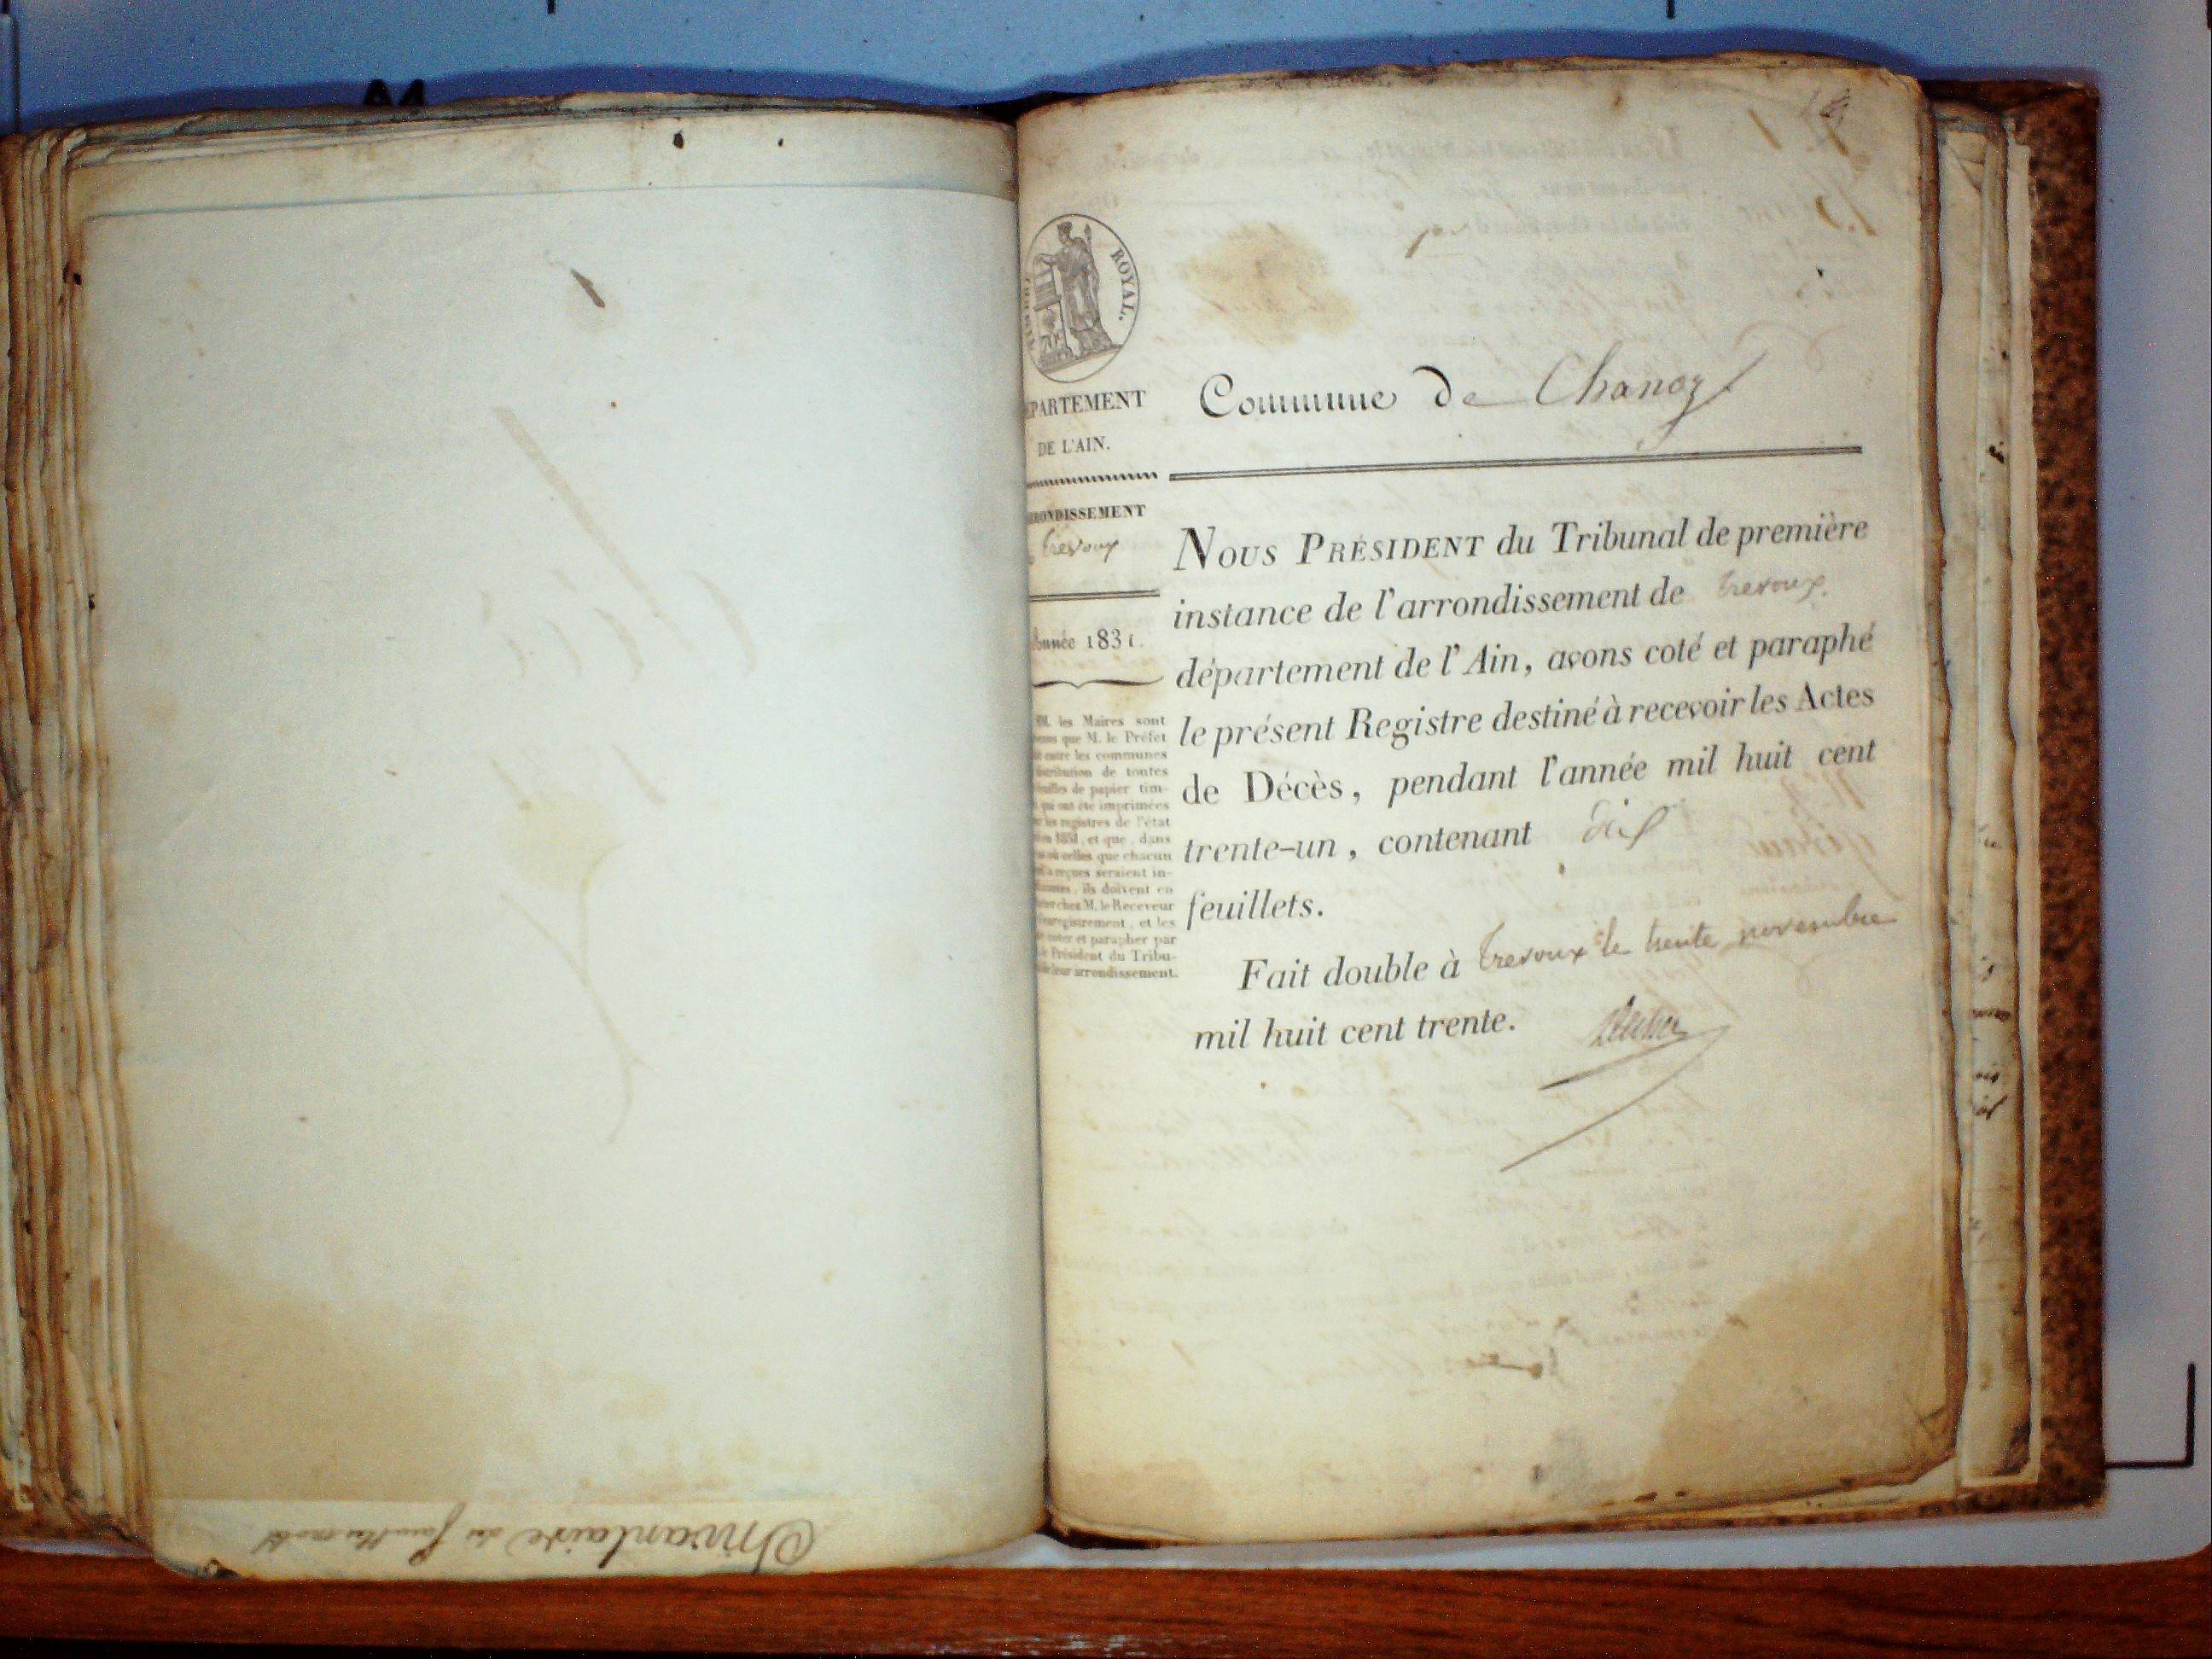 ROYAL.
DE L'AIN.
Trevoux
Année 1831.
MM. les Maires sont
que M. le Préfet
entre les communes
distribution de toutes
feuilles de papier tim-
qui ont été imprimées
les registres de l'état
1831, et que, dans
celles que chacun
reçues seraient in-
, ils doivent en
chez M. le Receveur
, et les
et parapher par
Président du Tribu-
leur arrondissement.
Commune de Chanoz
NOUS PRÉSIDENT du Tribunal de première
instance de l'arrondissement de Trevoux.
département de l'Ain, avons coté et paraphé
le présent Registre destiné à recevoir les Actes
de Décès, pendant l'année mil huit cent
trente-un, contenant dix
feuillets.
Fait double à Trevoux le trente novembre
mil huit cent trente.